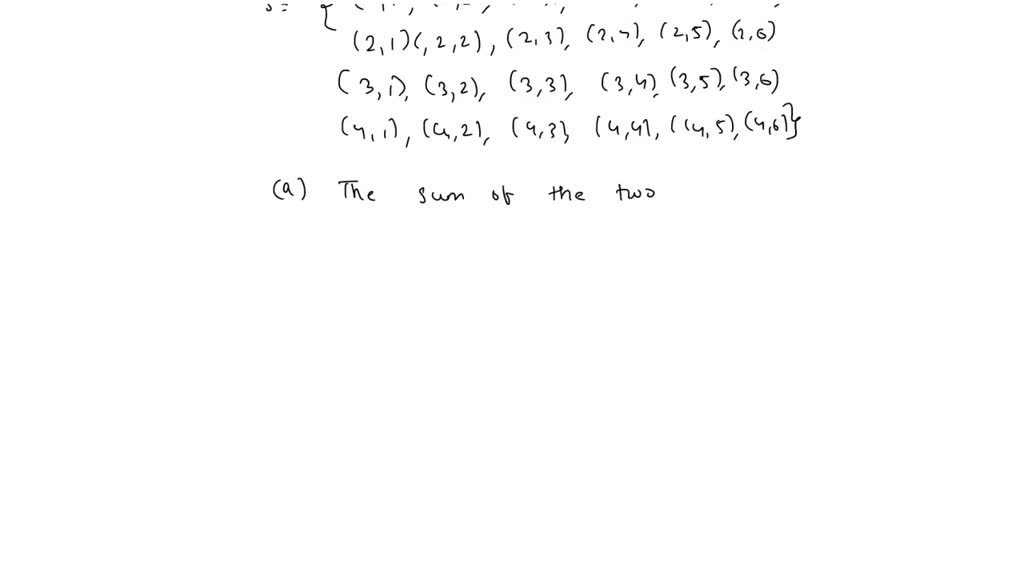 S = {
(2,1)(,2,2), (2,3), (2,4), (2,5), (2,6)
(3,1), (3,2), (3,3), (3,4), (3,5), (3,6)
(4,1), (4,2), (4,3), (4,4), ((4,5), (4,6)}
(a) The sum of the two